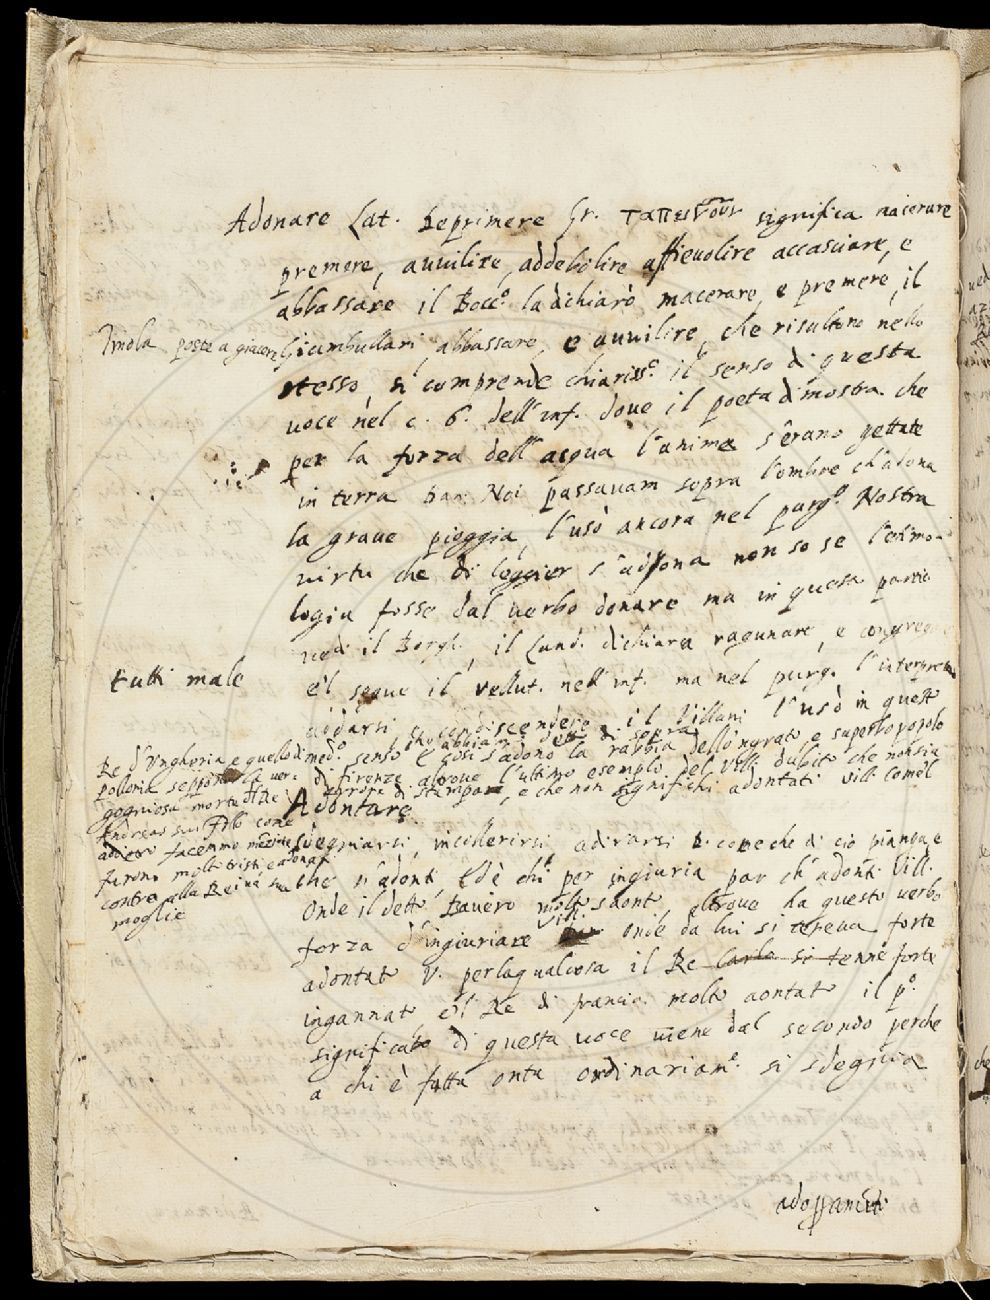 Adonare Lat. Deprimere Gr. ταπεινοῦν significa macerare
premere, auuilire, addebolire affieuolire accasciare, e
abbassare il Bocc.º la dichiarò macerare, e premere, il
Imola poste a giacere Giambullari abbassare, e auuilire, che risultono nello
stesso, si comprende chiariss.º il senso di questa
uoce nel c. 6. dell'inf. doue il poeta dimostra che
per la forza dell'acqua l'anime s'erano gettate
in terra Dan: Noi passauam sopra l'ombre ch'adona
la graue pioggia, l'usò ancora nel purg.º Nostra
uirtu che di leggier s'adona non so se l'etimo-
logia fosse dal uerbo donare ma in questa
uedi il Borgh. il Land. dichiara ragunare, e
tutti male
e'l segue il Vellut. nell'inf. ma nel purg. l'interpreta
il Villani l'usò in questo
che abbiam detto di sopra
med.º senso e così s'adonò la rabbia dello'ngrato, e superbo popolo
di firenze altroue l'ultimo esemplo del Vill: dubito che non sia
errore di stampa, e che non significhi adontati Vill. come'l
Re d'Ungheria, e quello di
pollonia seppono la uer-
gogniosa morte del Re
Andreas suo
furono molto tristi, e adonati
contra alla Reina sua
moglie
Adontare
sdegniarsi, incollerirsi adirarsi B. come che di ciò pianga, e
che s'adonti Ed è chi per ingiuria par ch'adonti Vill.
Onde il detto Bauero molto s'adontò altroue ha questo uerbo
forza d'ingiuriare Vill. onde da lui si teneua forte
adontato V. perlaqualcosa il Re Carlo si tenne forte
ingannato e'l Re di francia molto aontato il p.º
significato di questa uoce uiene dal secondo perche
a chi è fatta onta ordinariam.º si sdegnia